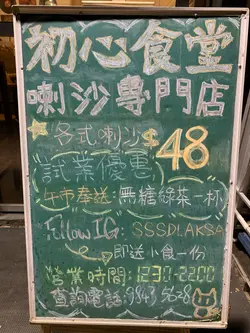 初心食堂
喇沙專門店
各式喇沙 $48
試業優惠
午市奉送:無糖綠茶一杯
Follow IG: SSSDLAKSA
即送小食一份
營業時間:1230-2200
查詢電話:9843 5628